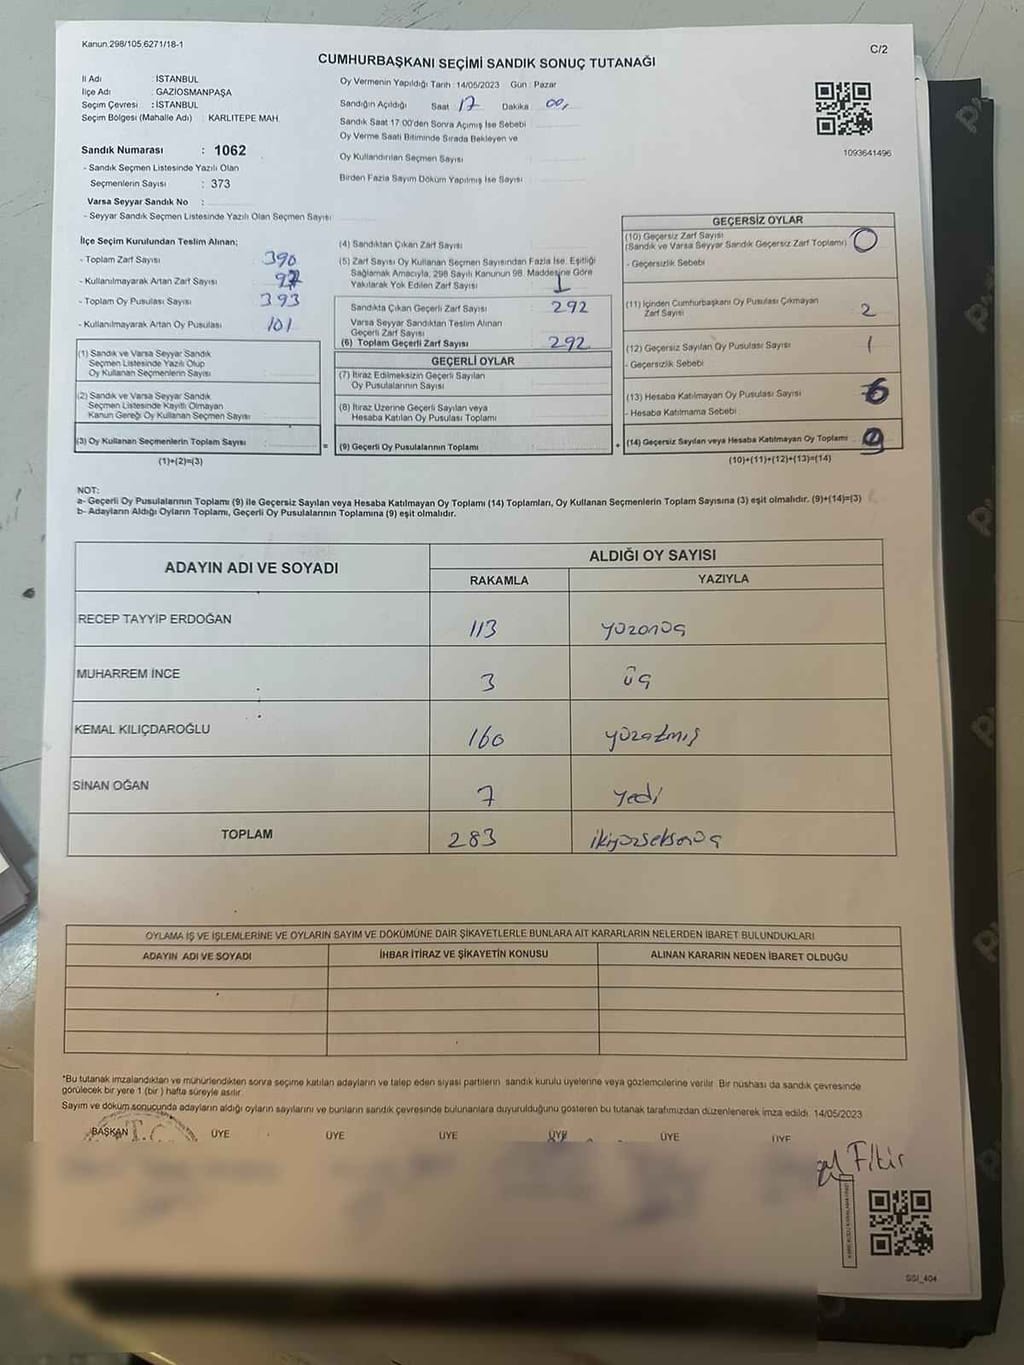 Kanun.298/105,6271/18-1
C/2
CUMHURBAŞKANI SEÇİMİ SANDIK SONUÇ TUTANAĞI
İl Adı : İSTANBUL
İlçe Adı : GAZİOSMANPAŞA
Seçim Çevresi : İSTANBUL
Seçim Bölgesi (Mahalle Adı) : KARLITEPE MAH.
Sandık Numarası : 1062
- Sandık Seçmen Listesinde Yazılı Olan
Seçmenlerin Sayısı : 373
Varsa Seyyar Sandık No :
- Seyyar Sandık Seçmen Listesinde Yazılı Olan Seçmen Sayısı
Oy Vermenin Yapıldığı Tarih : 14/05/2023 Gün : Pazar
Sandığın Açıldığı Saat 17 Dakika 00,
Sandık Saat 17.00'den Sonra Açımış İse Sebebi
Oy Verme Saati Bitiminde Sırada Bekleyen ve
Oy Kullandırılan Seçmen Sayısı
Birden Fazla Sayım Döküm Yapılmış İse Sayısı
1093641496
İlçe Seçim Kurulundan Teslim Alınan;
- Toplam Zarf Sayısı 390
- Kullanılmayarak Artan Zarf Sayısı
- Toplam Oy Pusulası Sayısı 393
- Kullanılmayarak Artan Oy Pusulası 101
(1) Sandık ve Varsa Seyyar Sandık
Seçmen Listesinde Yazılı Olup
Oy Kullanan Seçmenlerin Sayısı
(2) Sandık ve Varsa Seyyar Sandık
Seçmen Listesinde Kayıtlı Olmayan
Kanun Gereği Oy Kullanan Seçmen Sayısı
(3) Oy Kullanan Seçmenlerin Toplam Sayısı
(1)+(2)=(3)
(4) Sandıktan Çıkan Zarf Sayısı
(5) Zarf Sayısı Oy Kullanan Seçmen Sayısından Fazla İse, Eşitliği
Sağlamak Amacıyla, 298 Sayılı Kanunun 98. Maddesine Göre
Yakılarak Yok Edilen Zarf Sayısı 1
Sandıkta Çıkan Geçerli Zarf Sayısı 292
Varsa Seyyar Sandıktan Teslim Alınan
Geçerli Zarf Sayısı
(6) Toplam Geçerli Zarf Sayısı 292
GEÇERLİ OYLAR
(7) İtiraz Edilmeksizin Geçerli Sayılan
Oy Pusulalarının Sayısı
(8) İtiraz Üzerine Geçerli Sayılan veya
Hesaba Katılan Oy Pusulası Toplamı
= (9) Geçerli Oy Pusulalarının Toplamı +
GEÇERSİZ OYLAR
(10) Geçersiz Zarf Sayısı
(Sandık ve Varsa Seyyar Sandık Geçersiz Zarf Toplamı) 0
- Geçersizlik Sebebi
(11) İçinden Cumhurbaşkanı Oy Pusulası Çıkmayan
Zarf Sayısı 2
(12) Geçersiz Sayılan Oy Pusulası Sayısı 1
- Geçersizlik Sebebi
(13) Hesaba Katılmayan Oy Pusulası Sayısı 6
- Hesaba Katılmama Sebebi
(14) Geçersiz Sayılan veya Hesaba Katılmayan Oy Toplamı 9
(10)+(11)+(12)+(13)=(14)
NOT:
a- Geçerli Oy Pusulalarının Toplamı (9) ile Geçersiz Sayılan veya Hesaba Katılmayan Oy Toplamı (14) Toplamları, Oy Kullanan Seçmenlerin Toplam Sayısına (3) eşit olmalıdır. (9)+(14)=(3)
b- Adayların Aldığı Oyların Toplamı, Geçerli Oy Pusulalarının Toplamına (9) eşit olmalıdır.
ADAYIN ADI VE SOYADI
ALDIĞI OY SAYISI
RAKAMLA YAZIYLA
RECEP TAYYİP ERDOĞAN 113 yüzonüç
MUHARREM İNCE 3 üç
KEMAL KILIÇDAROĞLU 160 yüzatmış
SİNAN OĞAN 7 yedi
TOPLAM 283 ikiyüzseksenüç
OYLAMA İŞ VE İŞLEMLERİNE VE OYLARIN SAYIM VE DÖKÜMÜNE DAİR ŞİKAYETLERLE BUNLARA AİT KARARLARIN NELERDEN İBARET BULUNDUKLARI
ADAYIN ADI VE SOYADI İHBAR İTİRAZ VE ŞİKAYETİN KONUSU ALINAN KARARIN NEDEN İBARET OLDUĞU
*Bu tutanak imzalandıktan ve mühürlendikten sonra seçime katılan adayların ve talep eden siyasi partilerin sandık kurulu üyelerine veya gözlemcilerine verilir. Bir nüshası da sandık çevresinde
görülecek bir yere 1 (bir) hafta süreyle asılır.
Sayım ve döküm sonucunda adayların aldığı oyların sayılarını ve bunların sandık çevresinde bulunanlara duyurulduğunu gösteren bu tutanak tarafımızdan düzenlenerek imza edildi. 14/05/2023
BAŞKAN ÜYE ÜYE ÜYE ÜYE ÜYE ÜYE
T.C.
Fikir
SSI_404